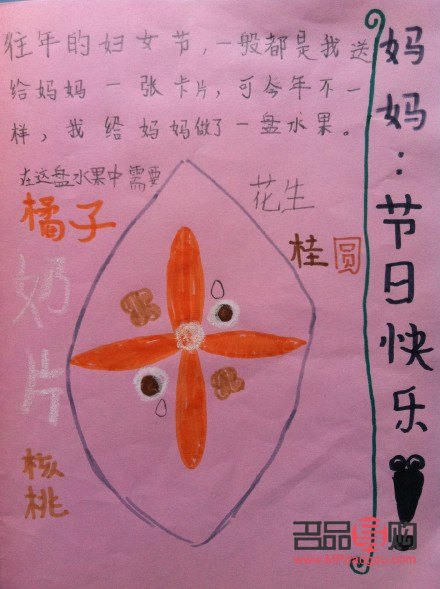 往年的妇女节，一般都是我送
给妈妈一张卡片，可今年不一
样，我给妈妈做了一盘水果。
在这盘水果中需要
花生
橘子
桂圆
奶片
核桃
妈妈：节日快乐！
召品导购